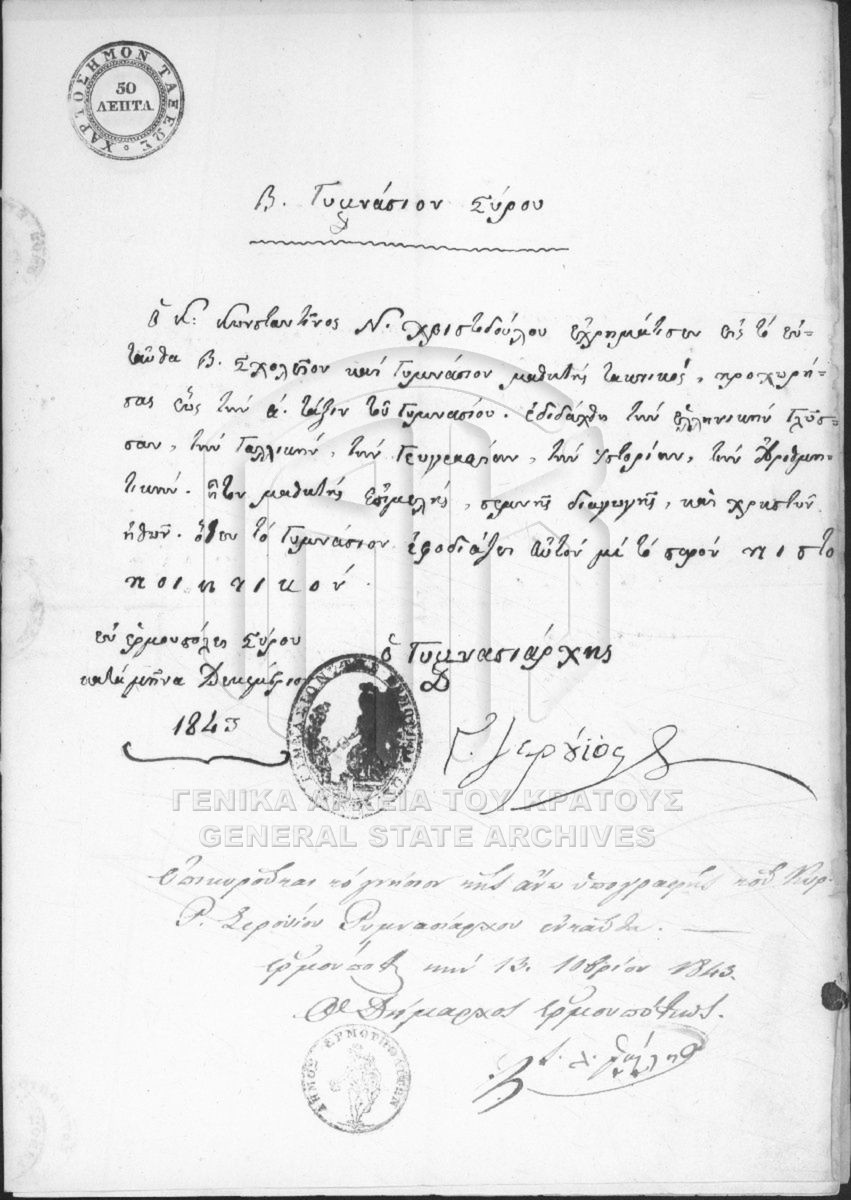 ΧΑΡΤΟΣΗΜΟΝ ΤΑΞΕΩΣ
50
ΛΕΠΤΑ
Β. Γυμνάσιον Σύρου
Ὁ Κ: Κωνσταντῖνος Ν. Χριστοδούλου ἐχρημάτισεν εἰς τὸ ἐν-
ταῦθα Β. Σχολεῖον καὶ Γυμνάσιον μαθητὴς τακτικός, προχωρή-
σας εἰς τὴν ά. τάξιν τοῦ Γυμνασίου. ἐδιδάχθη τὴν ἑλληνικὴν Γλῶσ-
σαν, τὴν Γαλλικήν, τὴν Γεωγραφίαν, τὴν Ἱστορίαν, τὴν Ἀριθμη-
τικήν. ἦτον μαθητὴς ἐπιμελής, σεμνῆς διαγωγῆς, καὶ χρηστῶν
ἠθῶν. ὅθεν τὸ Γυμνάσιον ἐφοδιάζει αὐτὸν μὲ τὸ παρὸν πιστο
ποιητικόν.
ἐν Ἑρμουπόλει Σύρου
κατὰ μῆνα Δεκέμβριον
1843
ὁ Γυμνασιάρχης
Γ. Σερούϊος
ΓΕΝΙΚΑ ΑΡΧΕΙΑ ΤΟΥ ΚΡΑΤΟΥΣ
GENERAL STATE ARCHIVES
Ἐπικυροῦται τὸ γνήσιον τῆς ἄνω ὑπογραφῆς τοῦ Κυρ.
Γ. Σερουΐου Γυμνασιάρχου ἐνταῦθα.
Ἑρμούπολ τὴν 13. 10βρίου 1843.
Ὁ Δήμαρχος Ἑρμουπόλεως.
ΔΗΜΟΣ ΕΡΜΟΥΠΟΛΙΤΩΝ